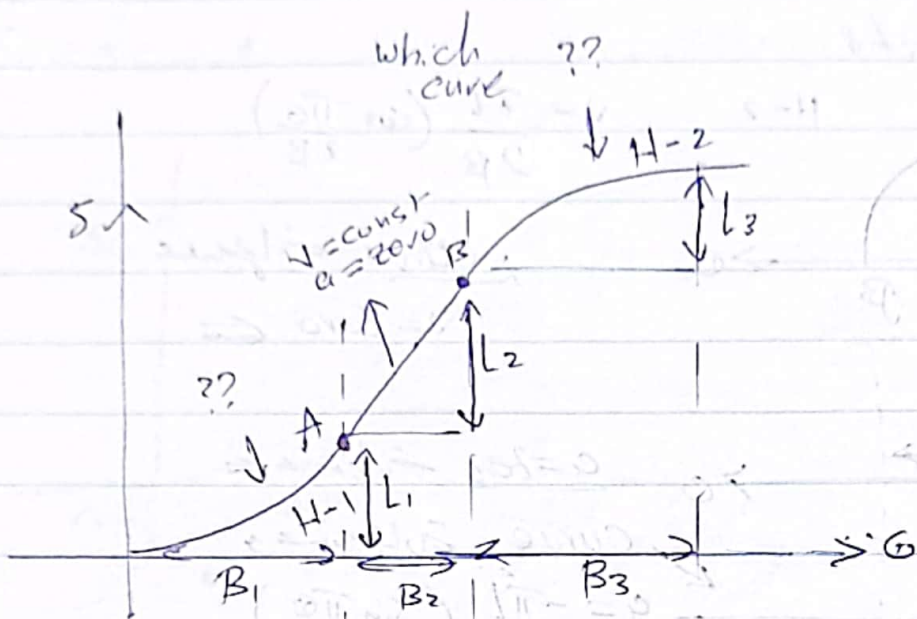 which ??
curve
H-2
S
L3
v=const
a=zero
B
L2
??
A
H-1
L1
B1
B2
B3